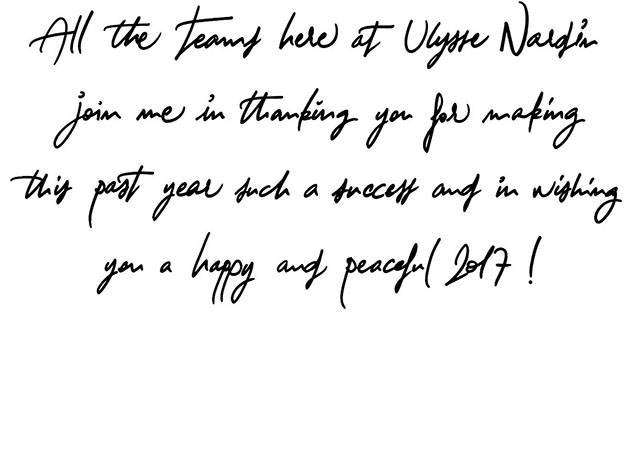 All the teams here at Ulysse Nardin
join me in thanking you for making
this past year such a success and in wishing
you a happy and peaceful 2017 !